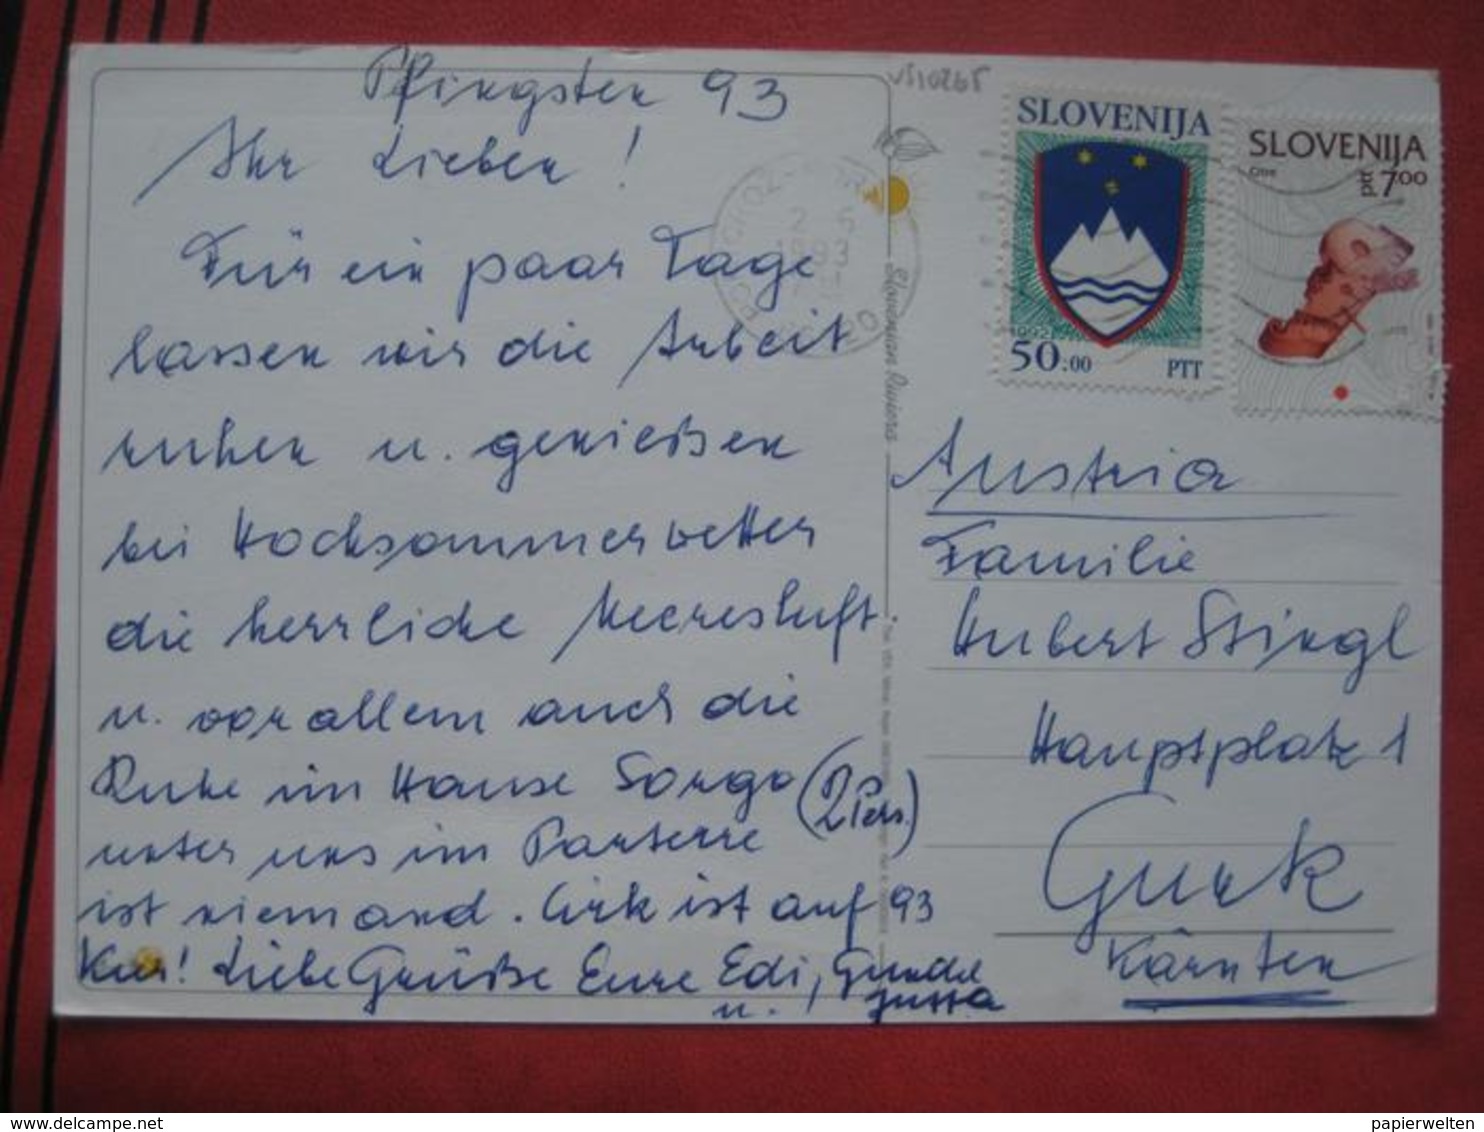 Pfingsten 93
Ihr Lieben!
Für ein paar Tage
lassen wir die Arbeit
ruhen u. genießen
bei Hochsommerwetter
die herrliche Meeresluft.
u. vor allem auch die
Ruhe im Hause Sorgo (2 Pers.)
unter uns im Parterre
ist niemand. Cirk ist auf 93
Kur! Liebe Grüße Eure Edi, Gundel
u. Jussa
VS10265
SLOVENIJA
1992
50.00 PTT
SLOVENIJA
ptt 7.00
2 6
1993
Slovenian Riviera
Austria
Familie
Hubert Stingl
Hauptplatz 1
Gurk
Kärnten
www.delcampe.net
papierwelten